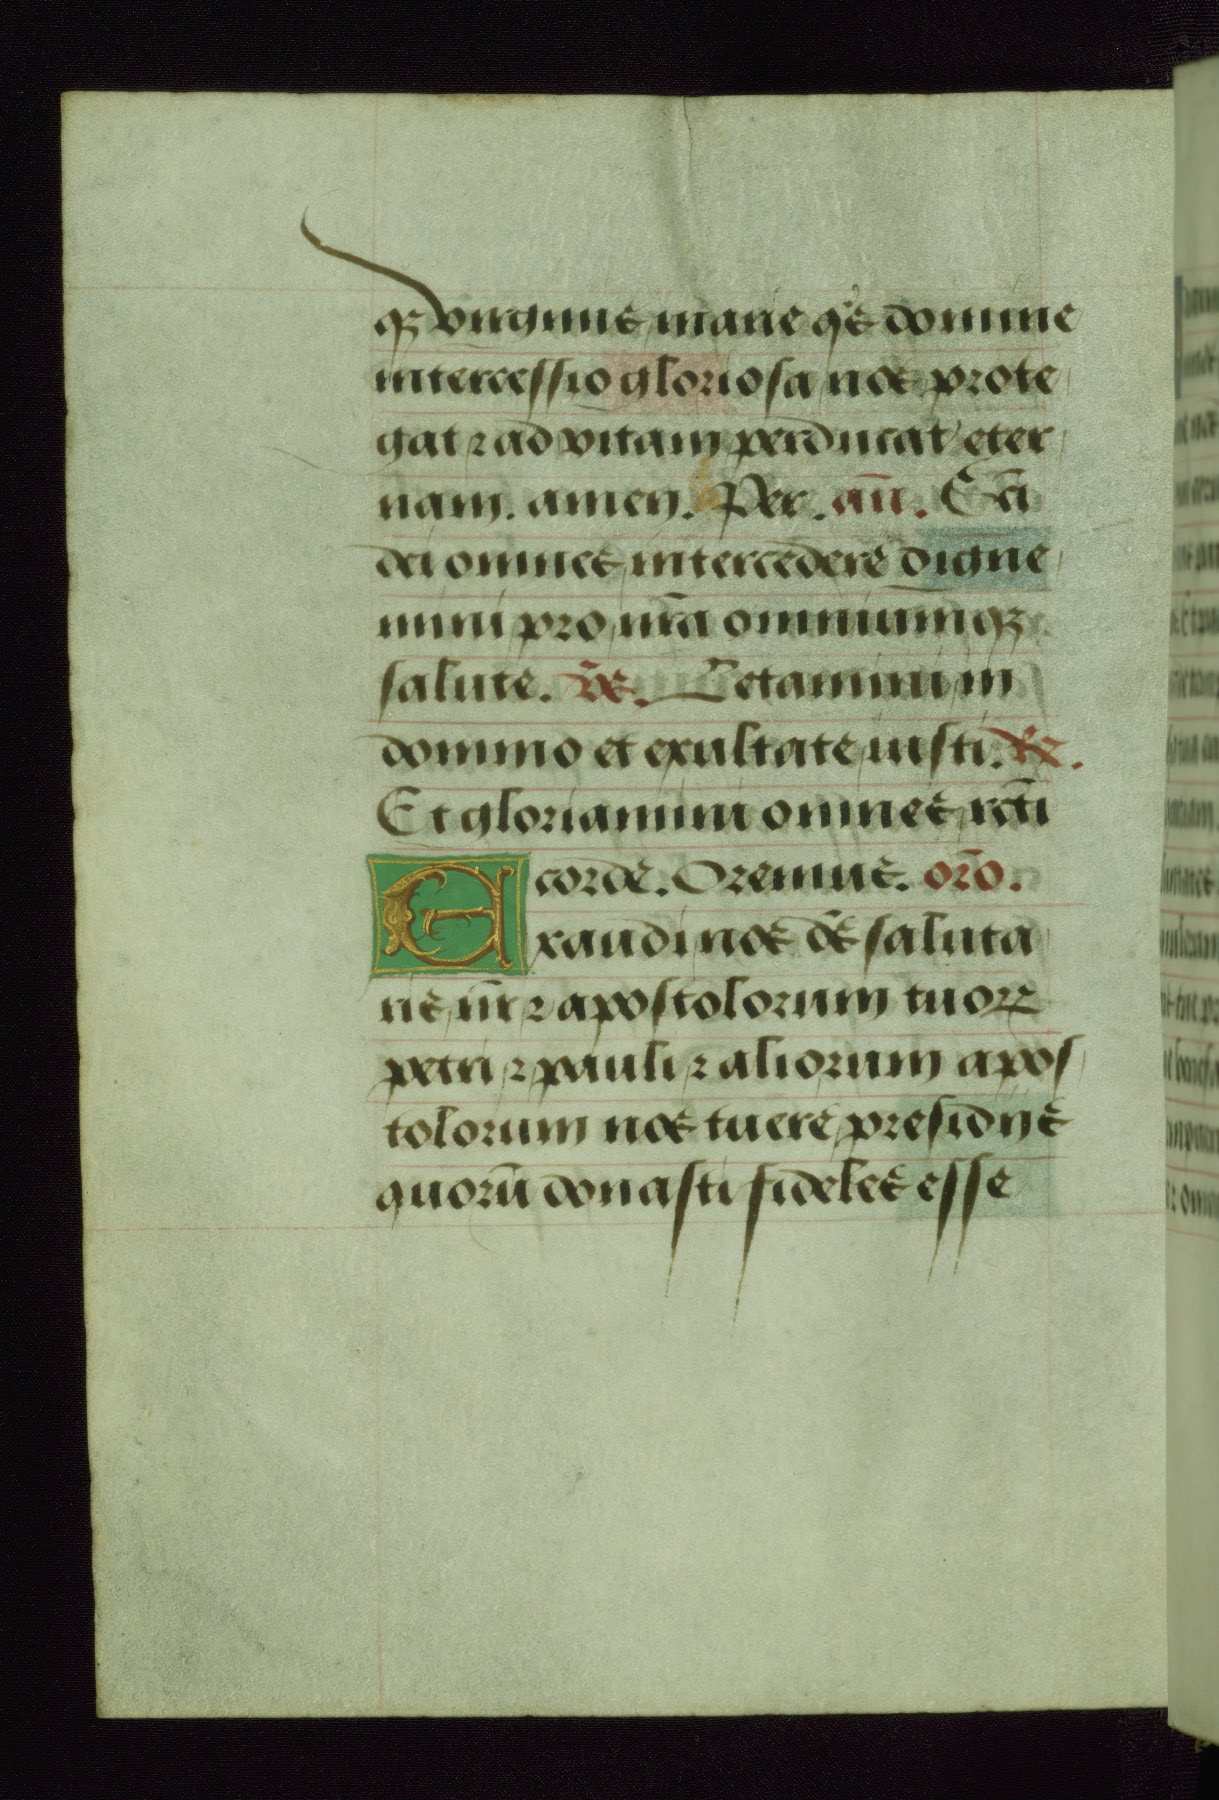 qꝫ virginis marie q̄s domine
intercessio gloriosa nos prote
gat ⁊ ad vitam perducat eter
nam. amen. Per. an̄. Sc̄i
dei omnes intercedere digne
mini pro nr̄a omniumqꝫ
salute. v̄s. Letamini in
domino et exultate iusti. ℟.
Et gloriamini omnes rc̄ti
corde. Oremus. orō.
Exaudi nos ds̄ saluta
ris nr̄ ⁊ apostolorum tuoꝝ
petri ⁊ pauli ⁊ aliorum apos
tolorum nos tuere presidijs
quorū donasti fideles esse